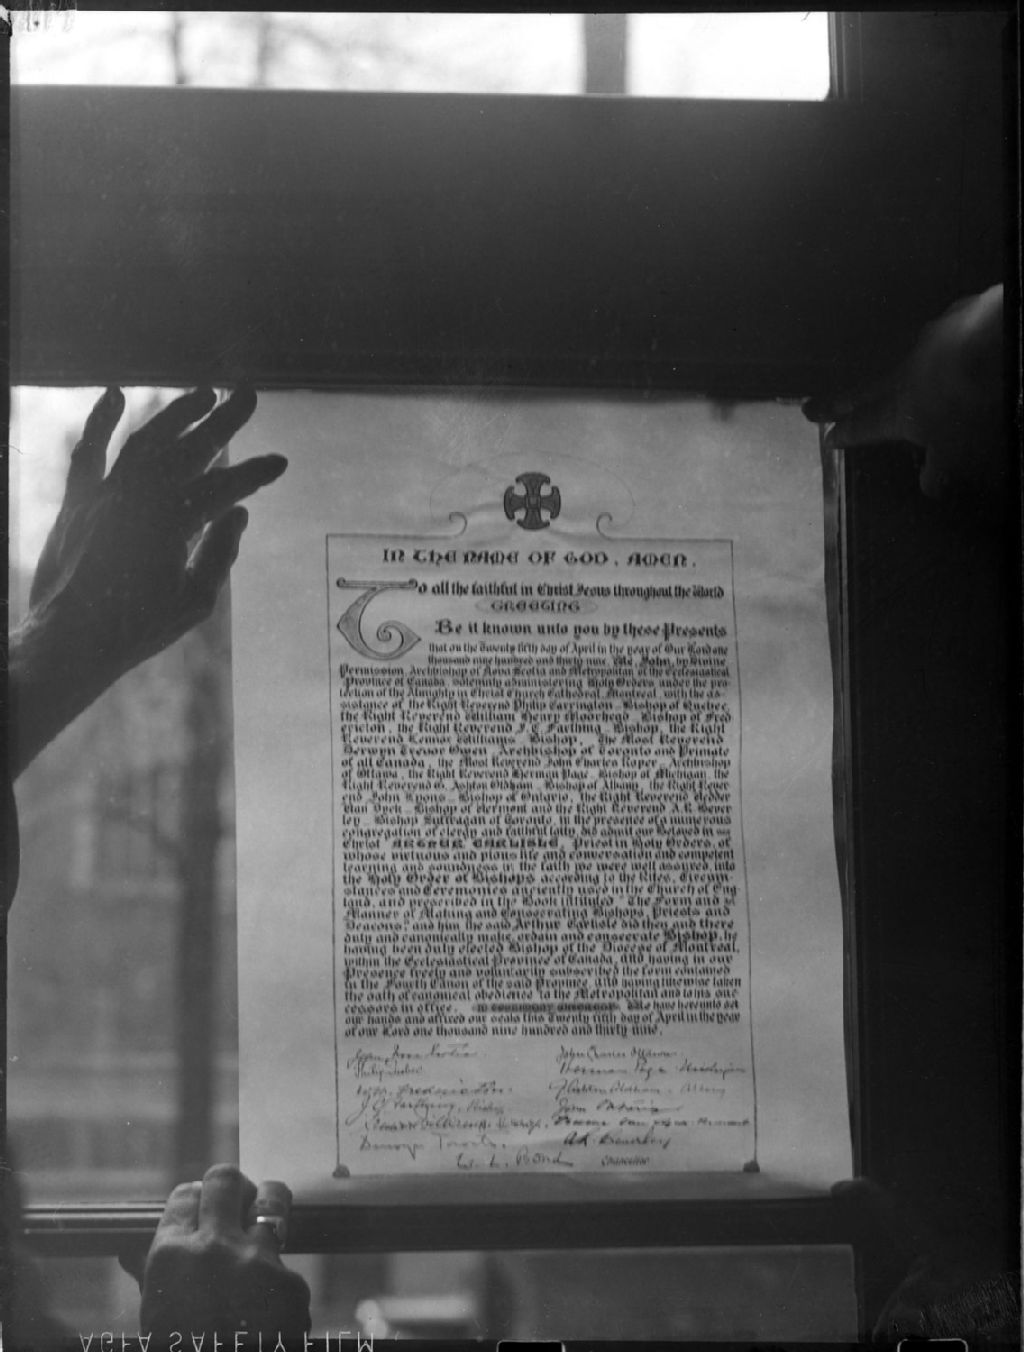 IN THE NAME OF GOD, AMEN.
To all the faithful in Christ Jesus throughout the World
GREETING
Be it known unto you by these Presents
that on the Twenty fifth day of April in the year of Our Lord one
thousand nine hundred and thirty nine, We, John, by Divine
Permission, Archbishop of Nova Scotia and Metropolitan of the Ecclesiastical
Province of Canada, solemnly administering Holy Orders under the pro-
tection of the Almighty in Christ Church Cathedral, Montreal, with the as-
sistance of the Right Reverend Philip Carrington - Bishop of Quebec,
the Right Reverend William Henry Moorhead - Bishop of Fred
ericton, the Right Reverend J.C. Farthing - Bishop, the Right
Reverend Lennox Williams - Bishop, The Most Reverend
Derwyn Trevor Owen - Archbishop of Toronto and Primate
of all Canada, the Most Reverend John Charles Roper - Archbishop
of Ottawa, the Right Reverend Herman Page - Bishop of Michigan, the
Right Reverend G. Ashton Oldham - Bishop of Albany, the Right Rever
end John Lyons - Bishop of Ontario, the Right Reverend Vedder
Van Dyck - Bishop of Vermont and the Right Reverend A.R. Bever
ley - Bishop Suffragan of Toronto, in the presence of a numerous
congregation of clergy and faithful laity, did admit our Beloved in
Christ ARTHUR CARLISLE, Priest in Holy Orders, of
whose virtuous and pious life and conversation and competent
learning and soundness in the faith we were well assured, into
the Holy Order of Bishops according to the Rites, Circum-
stances and Ceremonies anciently used in the Church of Eng-
land, and prescribed in the Book intituled "The Form and
Manner of Making and Consecrating Bishops, Priests and
Deacons," and him the said Arthur Carlisle did then and there
duly and canonically make, ordain and consecrate Bishop, he
having been duly elected Bishop of the Diocese of Montreal,
within the Ecclesiastical Province of Canada, and having in our
Presence freely and voluntarily subscribed the form contained
in the Fourth Canon of the said Province, and having likewise taken
the oath of canonical obedience to the Metropolitan and to his suc-
cessors in office. In Testimony Whereof We have hereunto set
our hands and affixed our seals this Twenty fifth day of April in the year
of our Lord one thousand nine hundred and thirty nine.
John Nova Scotia
Philip Quebec
Fredericton
J.C. Farthing, Bishop
Derwyn Toronto
John Charles Ottawa
Herman Page Michigan
G. Ashton Oldham, Albany
John Ontario
Vedder Van Dyck Vermont
A.R. Beverley
W. L. Bond Chancellor
AGFA SAFETY FILM